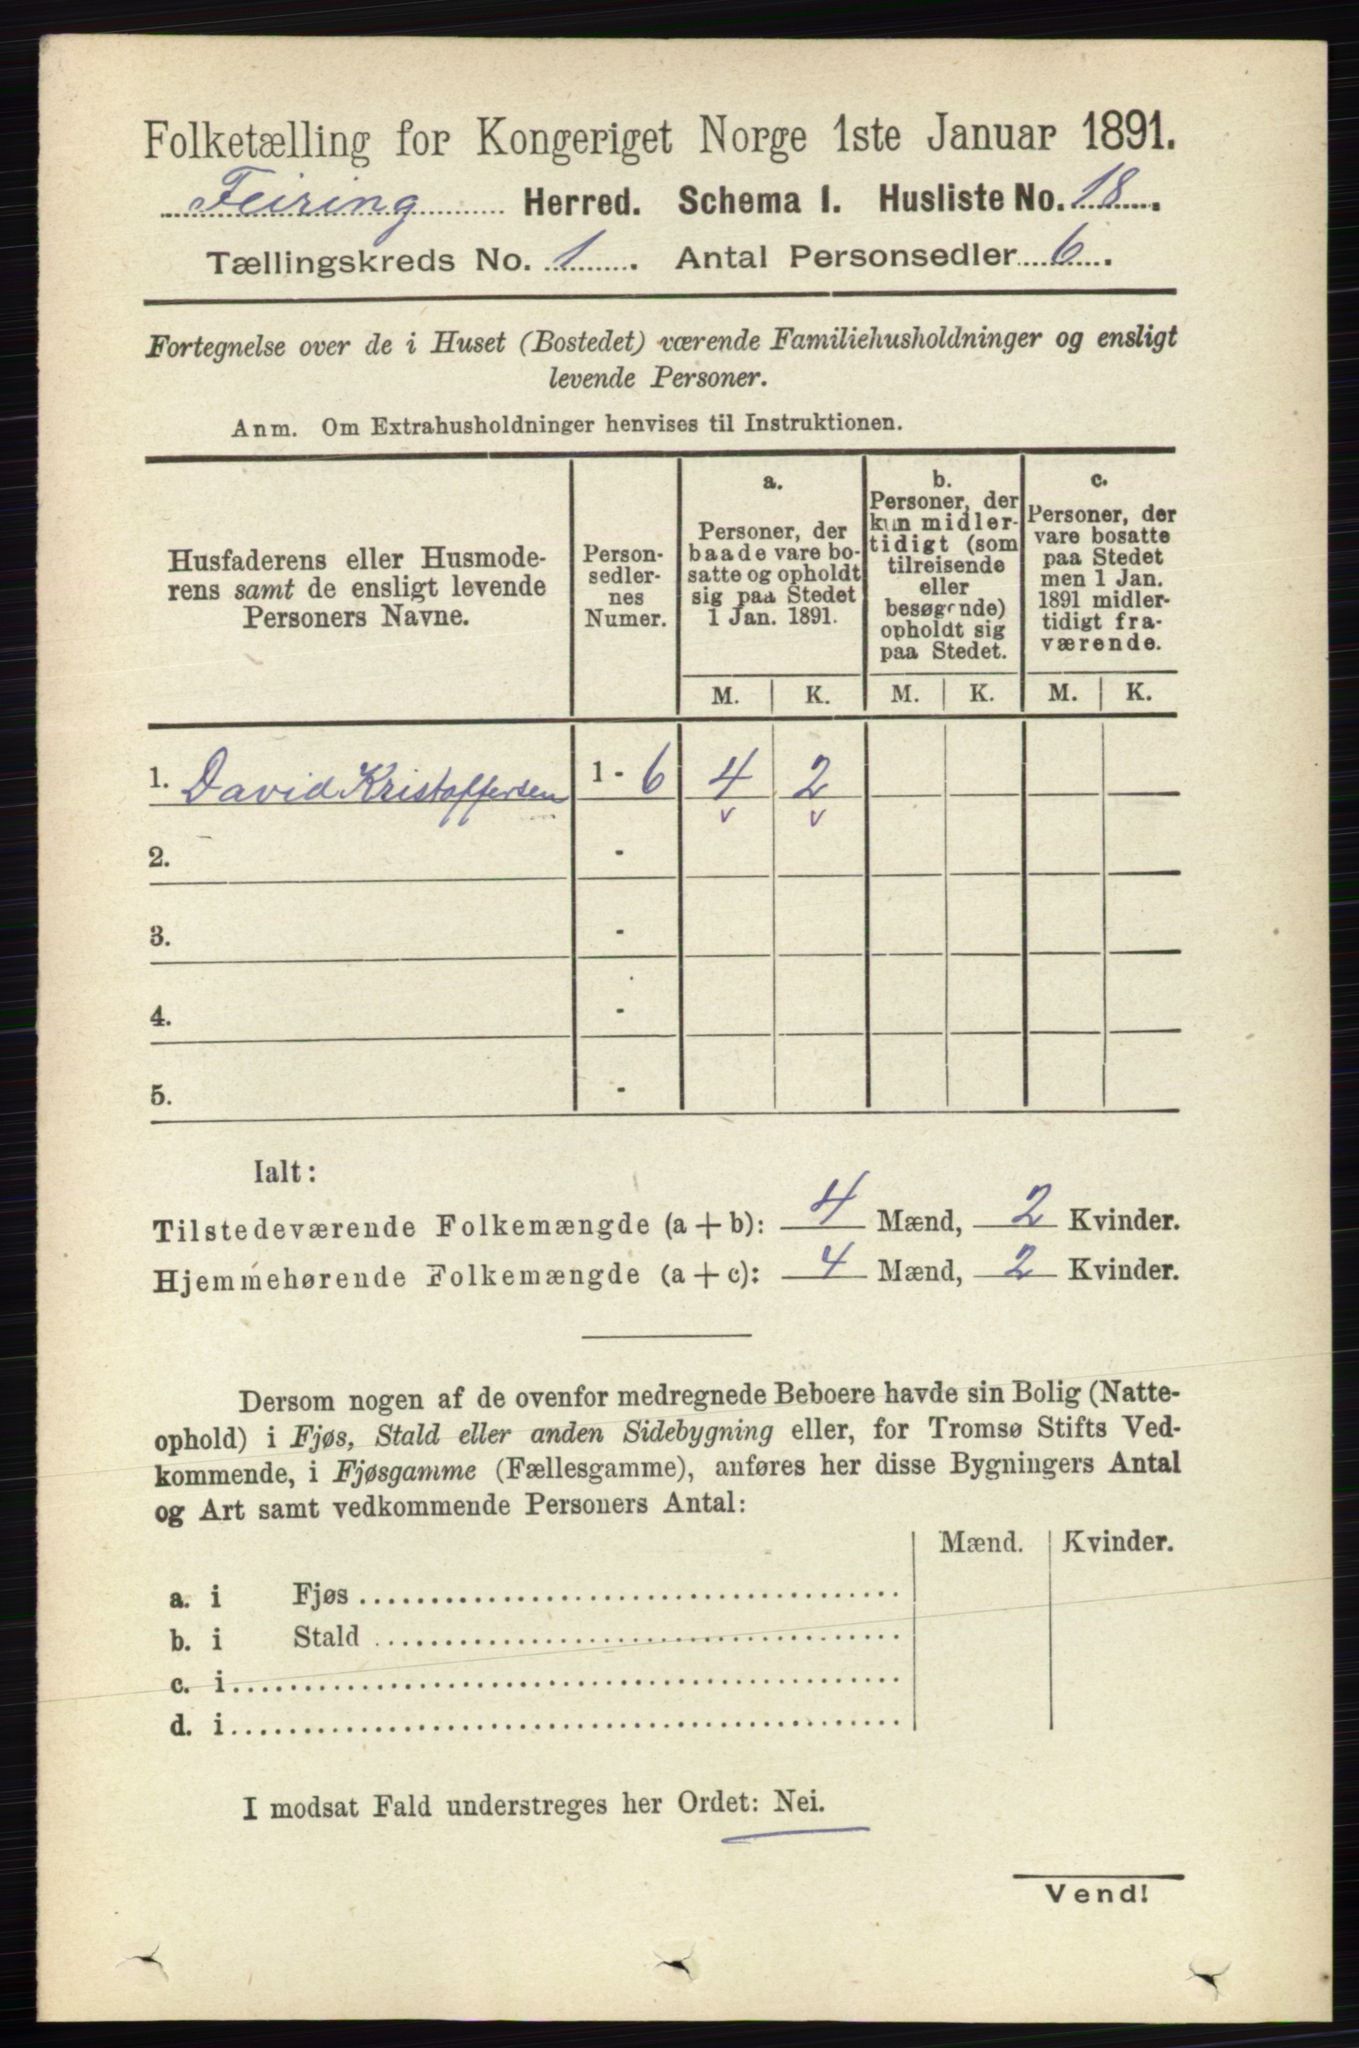 Folketælling for Kongeriget Norge 1ste Januar 1891.
Feiring Herred. Schema I. Husliste No. 18.
Tællingskreds No. 1. Antal Personsedler 6.
Fortegnelse over de i Huset (Bostedet) værende Familiehusholdninger og ensligt
levende Personer.
Anm. Om Extrahusholdninger henvises til Instruktionen.
Husfaderens eller Husmode-
rens samt de ensligt levende
Personers Navne.
Person-
sedler-
nes
Numer.
a.
Personer, der
baade vare bo-
satte og opholdt
sig paa Stedet
1 Jan. 1891.
b.
Personer, der
kun midler-
tidigt (som
tilreisende
eller
besøgende)
opholdt sig
paa Stedet.
c.
Personer, der
vare bosatte
paa Stedet
men 1 Jan.
1891 midler-
tidigt fra-
værende.
M. K. M. K. M. K.
1. David Kristoffersen 1 - 6 4 2
v v
2. -
3. -
4. -
5. -
Ialt:
Tilstedeværende Folkemængde (a + b): 4 Mænd, 2 Kvinder.
Hjemmehørende Folkemængde (a + c): 4 Mænd, 2 Kvinder.
Dersom nogen af de ovenfor medregnede Beboere havde sin Bolig (Natte-
ophold) i Fjøs, Stald eller anden Sidebygning eller, for Tromsø Stifts Ved-
kommende, i Fjøsgamme (Fællesgamme), anføres her disse Bygningers Antal
og Art samt vedkommende Personers Antal:
Mænd. Kvinder.
a. i Fjøs
b. i Stald
c. i
d. i
I modsat Fald understreges her Ordet: Nei.
Vend!